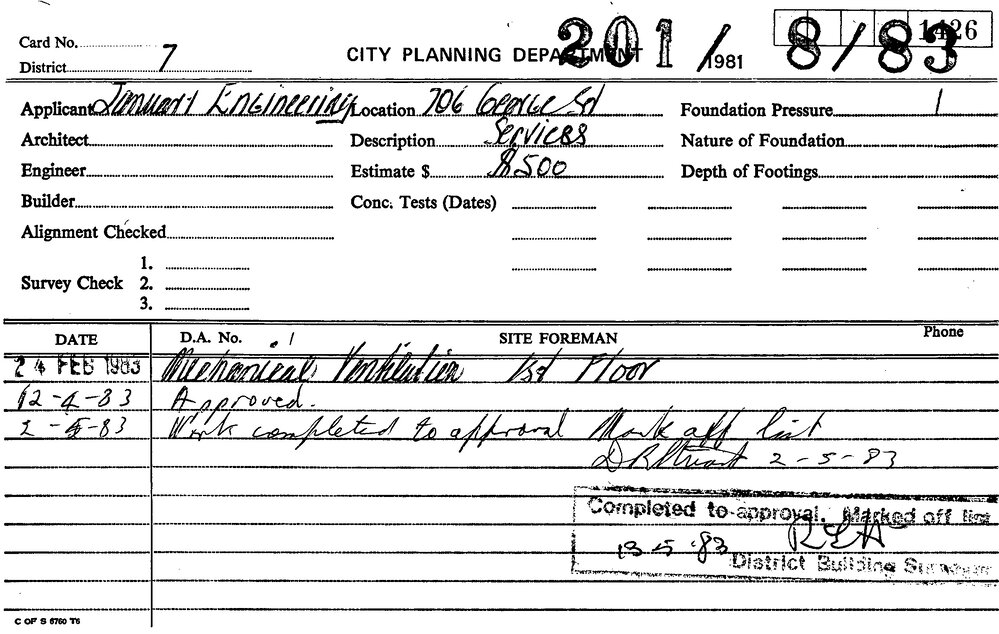 Card No. 1426
CITY PLANNING DEPARTMENT 201/1981 8/83
District 7
Applicant January Engineering Location 706 George St Foundation Pressure 1
Architect Description Services Nature of Foundation
Engineer Estimate $ $500 Depth of Footings
Builder Conc. Tests (Dates)
Alignment Checked
1.
Survey Check 2.
3.
DATE D.A. No. SITE FOREMAN Phone
24 FEB 1983 Mechanical Ventilation 1st Floor
12-4-83 Approved.
2-5-83 Work completed to approval Mark off list
2-5-83
Completed to approval. Marked off list
13-5-83
District Building Surveyor
C OF S 6760 T6